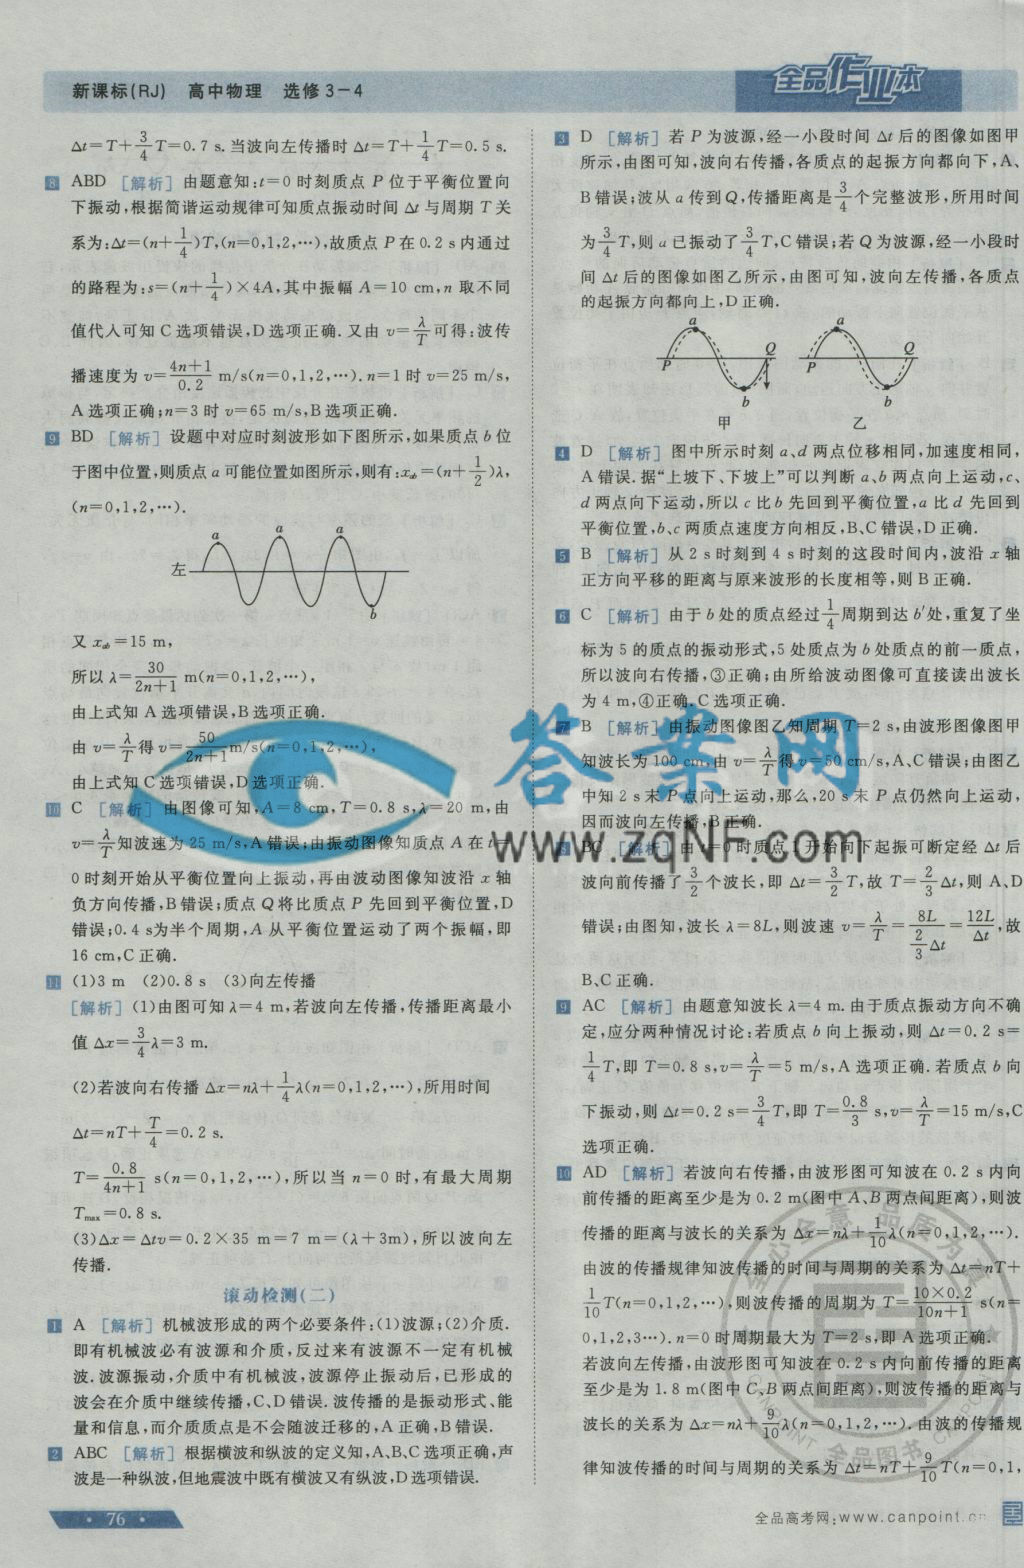 新课标(RJ) 高中物理 选修3-4
全品作业本
Δt=T+3/4T=0.7 s.当波向左传播时Δt=T+1/4T=0.5 s.
8 ABD [解析] 由题意知:t=0时刻质点P位于平衡位置向
下振动,根据简谐运动规律可知质点振动时间Δt与周期T关
系为:Δt=(n+1/4)T,(n=0,1,2,…),故质点P在0.2 s内通过
的路程为:s=(n+1/4)×4A,其中振幅A=10 cm,n取不同
值代入可知C选项错误,D选项正确.又由v=λ/T可得:波传
播速度为v=(4n+1)/0.2 m/s(n=0,1,2,…).n=1时v=25 m/s,
A选项正确;n=3时v=65 m/s,B选项正确.
9 BD [解析] 设题中对应时刻波形如下图所示,如果质点b位
于图中位置,则质点a可能位置如图所示,则有:xab=(n+1/2)λ,
(n=0,1,2,…).
a a a
左
b
又xab=15 m,
所以λ=30/(2n+1) m(n=0,1,2,…),
由上式知A选项错误,B选项正确.
由v=λ/T得v=50/(2n+1)m/s(n=0,1,2,…),
由上式知C选项错误,D选项正确.
10 C [解析] 由图像可知,A=8 cm,T=0.8 s,λ=20 m,由
v=λ/T知波速为25 m/s,A错误;由振动图像知质点A在t=
0时刻开始从平衡位置向上振动,再由波动图像知波沿x轴
负方向传播,B错误;质点Q将比质点P先回到平衡位置,D
错误;0.4 s为半个周期,A从平衡位置运动了两个振幅,即
16 cm,C正确.
11 (1)3 m (2)0.8 s (3)向左传播
[解析] (1)由图可知λ=4 m,若波向左传播,传播距离最小
值Δx=3/4λ=3 m.
(2)若波向右传播Δx=nλ+1/4λ(n=0,1,2,…),所用时间
Δt=nT+T/4=0.2 s.
T=0.8/(4n+1) s(n=0,1,2,…),所以当n=0时,有最大周期
Tmax=0.8 s.
(3)Δx=Δtv=0.2×35 m=7 m=(λ+3m),所以波向左
传播.
滚动检测(二)
1 A [解析] 机械波形成的两个必要条件:(1)波源;(2)介质.
即有机械波必有波源和介质,反过来有波源不一定有机械
波.波源振动,介质中有机械波,波源停止振动后,已形成的
波会在介质中继续传播,C、D错误.波传播的是振动形式、能
量和信息,而介质质点是不会随波迁移的,A正确,B错误.
2 ABC [解析] 根据横波和纵波的定义知,A、B、C选项正确,声
波是一种纵波,但地震波中既有横波又有纵波,D选项错误.
3 D [解析] 若P为波源,经一小段时间Δt后的图像如图甲
所示,由图可知,波向右传播,各质点的起振方向都向下,A、
B错误;波从a传到Q,传播距离是3/4个完整波形,所用时间
为3/4T,则a已振动了3/4T,C错误;若Q为波源,经一小段时
间Δt后的图像如图乙所示,由图可知,波向左传播,各质点
的起振方向都向上,D正确.
a a
P Q P Q
b b
甲 乙
4 D [解析] 图中所示时刻a、d两点位移相同,加速度相同,
A错误.据“上坡下、下坡上”可以判断a、b两点向上运动,c、
d两点向下运动,所以c比b先回到平衡位置,a比d先回到
平衡位置,b、c两质点速度方向相反,B、C错误,D正确.
5 B [解析] 从2 s时刻到4 s时刻的这段时间内,波沿x轴
正方向平移的距离与原来波形的长度相等,则B正确.
6 C [解析] 由于b处的质点经过1/4周期到达b′处,重复了坐
标为5的质点的振动形式,5处质点为b处质点的前一质点,
所以波向右传播,③正确;由所给波动图像可直接读出波长
为4 m,④正确.C选项正确.
7 B [解析] 由振动图像图乙知周期T=2 s,由波形图像图甲
知波长为100 cm,由v=λ/T得v=50 cm/s,A、C错误;由图乙
中知2 s末P点向上运动,那么,20 s末P点仍然向上运动,
因而波向左传播,B正确.
8 BC [解析] 由t=0时质点1开始向下起振可断定经Δt后
波向前传播了3/2个波长,即Δt=3/2T,故T=2/3Δt,则A、D
错误;由图知,波长λ=8L,则波速v=λ/T=8L/(2/3Δt)=12L/Δt,故
B、C正确.
9 AC [解析] 由题意知波长λ=4 m.由于质点振动方向不确
定,应分两种情况讨论:若质点b向上振动,则Δt=0.2 s=
1/4T,即T=0.8 s,v=λ/T=5 m/s,A选项正确.若质点b向
下振动,则Δt=0.2 s=3/4T,即T=0.8/3 s,v=λ/T=15 m/s,C
选项正确.
10 AD [解析] 若波向右传播,由波形图可知波在0.2 s内向
前传播的距离至少是为0.2 m(图中A、B两点间距离),则波
传播的距离与波长的关系为Δx=nλ+1/10λ(n=0,1,2,…).
由波的传播规律知波传播的时间与周期的关系为Δt=nT+
1/10T(n=0,1,2,…),则波传播的周期为T=10×0.2/(10n+1) s(n=
0,1,2,3…).n=0时周期最大为T=2 s,即A选项正确.
若波向左传播,由波形图可知波在0.2 s内向前传播的距离
至少是为1.8 m(图中C、B两点间距离),则波传播的距离与
波长的关系为Δx=nλ+9/10λ(n=0,1,2,…).由波的传播规
律知波传播的时间与周期的关系为Δt=nT+9/10T(n=0,1,
答案网
www.zqNF.com
全心全意 品质为真
CANPOINT 全品图书 CANPOINT
76
全品高考网:www.canpoint.cn